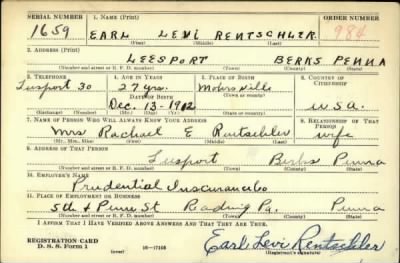 SERIAL NUMBER 1. NAME (Print) ORDER NUMBER
1659 EARL LEVI RENTSCHLER 984
(First) (Middle) (Last)
2. ADDRESS (Print)
LEESPORT BERKS PENNA
(Number and street or R. F. D. number) (Town) (County) (State)
3. TELEPHONE 4. AGE IN YEARS 5. PLACE OF BIRTH 6. COUNTRY OF CITIZENSHIP
Leesport 30 27 yrs. Mohrsville
DATE OF BIRTH (Town or county)
Dec. 13-1912 U.S.A.
(Exchange) (Number) (Mo.) (Day) (Yr.) (State or country)
7. NAME OF PERSON WHO WILL ALWAYS KNOW YOUR ADDRESS 8. RELATIONSHIP OF THAT PERSON
Mrs Rachael E Rentschler wife
(Mr., Mrs., Miss) (First) (Middle) (Last)
9. ADDRESS OF THAT PERSON
Leesport Berks Penna
(Number and street or R. F. D. number) (Town) (County) (State)
10. EMPLOYER'S NAME
Prudential Insurance Co
11. PLACE OF EMPLOYMENT OR BUSINESS
5th & Penn St Reading Pa. Penna
(Number and street or R. F. D. number) (Town) (County) (State)
I AFFIRM THAT I HAVE VERIFIED ABOVE ANSWERS AND THAT THEY ARE TRUE.
REGISTRATION CARD
D. S. S. Form 1 (over) 16-17105 Earl Levi Rentschler
(Registrant's signature)